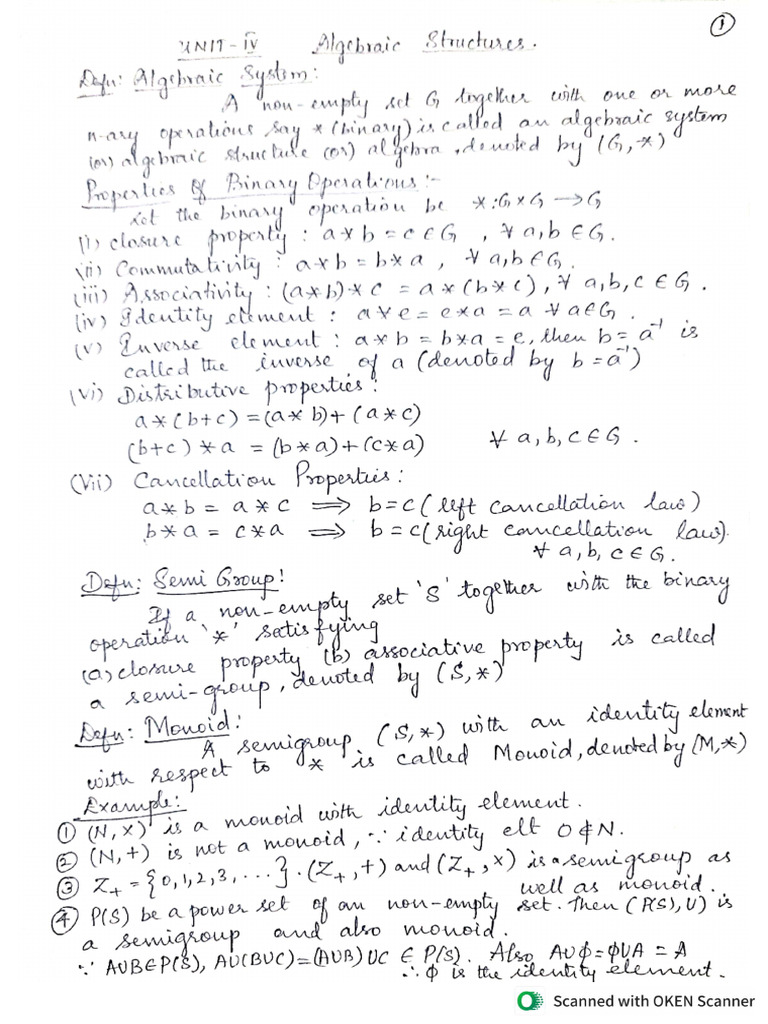 ①
UNIT-IV Algebraic Structures.
Defn: Algebraic System:
A non-empty set G together with one or more
n-ary operations say * (binary) is called an algebraic system
(or) algebraic structure (or) algebra, denoted by (G, *)
Properties of Binary Operations:-
Let the binary operation be *: G × G → G
(i) closure property : a * b = c ∈ G , ∀ a, b ∈ G.
(ii) Commutativity : a * b = b * a , ∀ a, b ∈ G.
(iii) Associativity : (a * b) * c = a * (b * c), ∀ a, b, c ∈ G.
(iv) Identity element : a * e = e * a = a ∀ a ∈ G.
(v) Inverse element : a * b = b * a = e, then b = a⁻¹ is
called the inverse of a (denoted by b = a⁻¹)
(vi) Distributive properties:
a * (b + c) = (a * b) + (a * c)
(b + c) * a = (b * a) + (c * a) ∀ a, b, c ∈ G.
(vii) Cancellation Properties:
a * b = a * c ⟹ b = c (left cancellation law)
b * a = c * a ⟹ b = c (right cancellation law).
∀ a, b, c ∈ G.
Defn: Semi Group!
If a non-empty set 'S' together with the binary
operation '*' satisfying
(a) closure property (b) associative property is called
a semi-group, denoted by (S, *)
Defn: Monoid:
A semigroup (S, *) with an identity element
with respect to * is called Monoid, denoted by (M, *)
Example:
① (N, ×) is a monoid with identity element.
② (N, +) is not a monoid, ∵ identity elt 0 ∉ N.
③ Z₊ = {0, 1, 2, 3, ...}. (Z₊, +) and (Z₊, ×) is a semigroup as
well as monoid.
④ P(S) be a power set of an non-empty set. Then (P(S), ∪) is
a semigroup and also monoid.
∵ A∪B ∈ P(S), A∪(B∪C) = (A∪B)∪C ∈ P(S). Also A∪ϕ = ϕ∪A = A
∴ ϕ is the identity element.
Scanned with OKEN Scanner